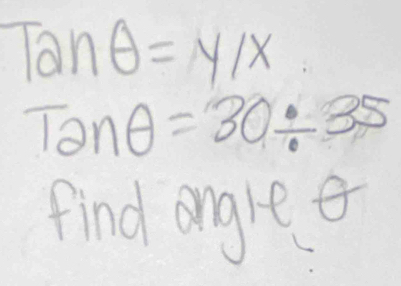 Tanθ = y/x
Tanθ = 30 ÷ 35
find angle θ